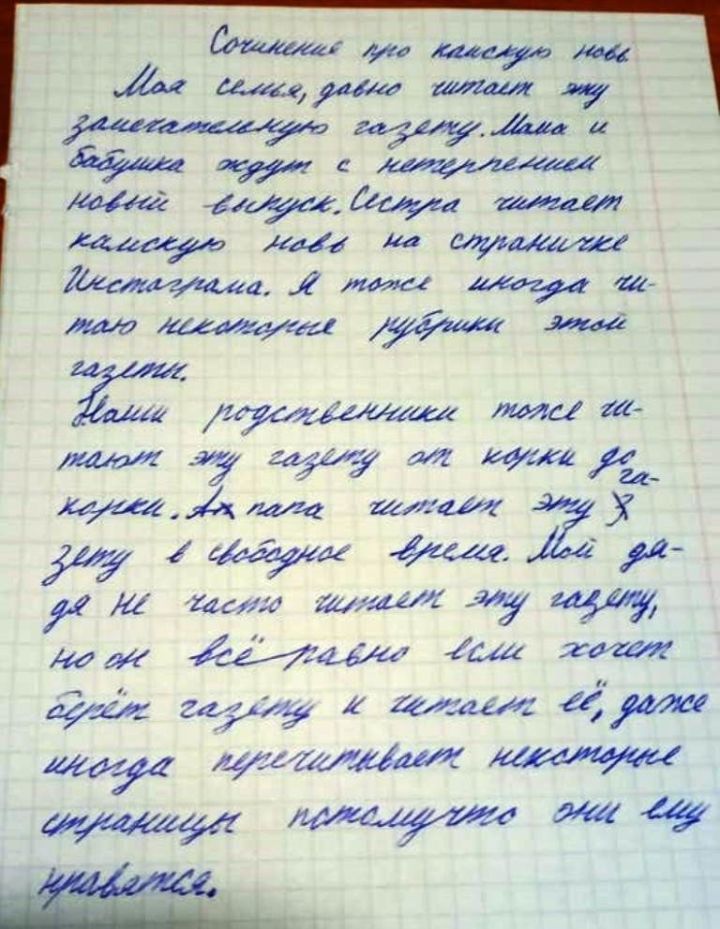 Сочинение про камскую новь
Моя семья, давно читает эту
замечательную газету. Мама и
бабушка ждут с нетерпением
новый выпуск. Сестра читает
камскую новь на страничке
Инстаграма. Я тоже иногда чи-
таю некоторые рубрики этой
газеты.
Наши родственники тоже чи-
тают эту газету от корки до
корки. А папа читает эту га-
зету в свободное время. Мой дя-
дя не часто читает эту газету,
но он всё равно если хочет
берёт газету и читает её, даже
иногда перечитывает некоторые
страницы потомучто они ему
нравятся.